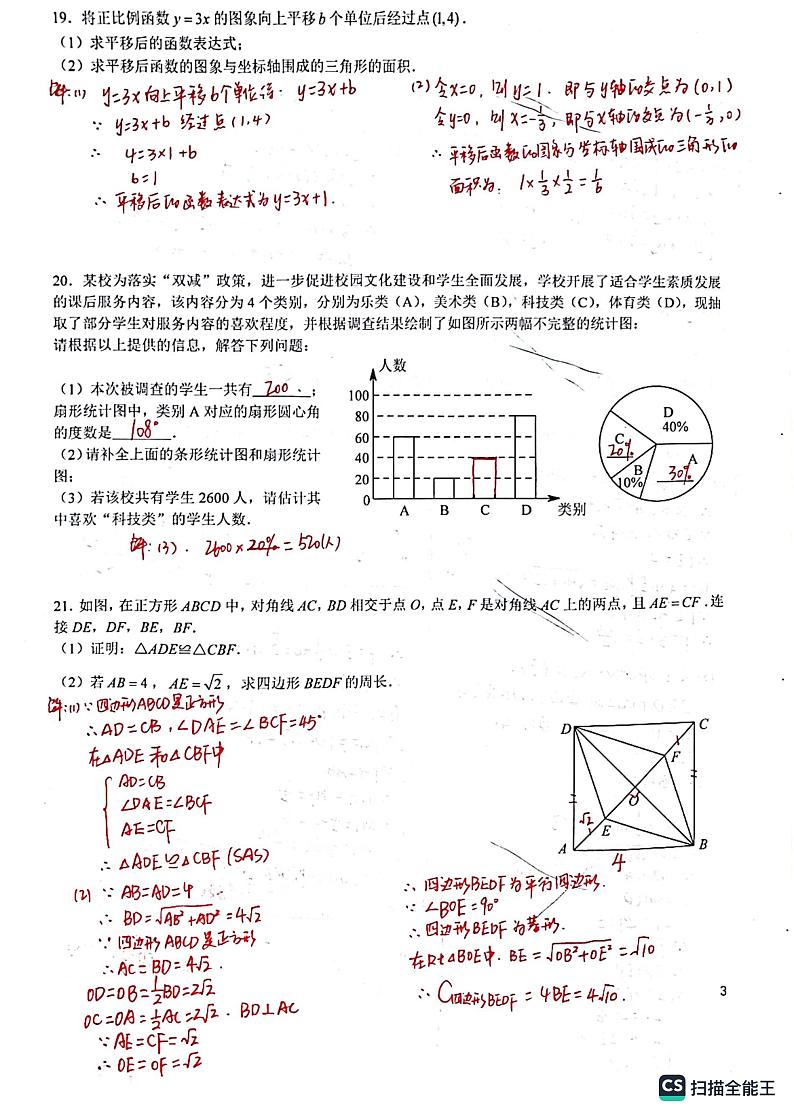 19．将正比例函数 y=3x 的图象向上平移 b 个单位后经过点(1,4)．
（1）求平移后的函数表达式；
（2）求平移后函数的图象与坐标轴围成的三角形的面积．
解:(1) y=3x向上平移b个单位得: y=3x+b
∵ y=3x+b 经过点(1,4)
∴ 4=3×1+b
b=1
∴ 平移后的函数表达式为y=3x+1.
(2) 令x=0, 则y=1. 即与y轴的交点为(0,1)
令y=0, 则x=-1/3, 即与x轴的交点为(-1/3,0)
∴ 平移后函数的图象与坐标轴围成的三角形的
面积为: 1×1/3×1/2=1/6
20．某校为落实“双减”政策，进一步促进校园文化建设和学生全面发展，学校开展了适合学生素质发展
的课后服务内容，该内容分为 4 个类别，分别为乐类（A），美术类（B），科技类（C），体育类（D），现抽
取了部分学生对服务内容的喜欢程度，并根据调查结果绘制了如图所示两幅不完整的统计图：
请根据以上提供的信息，解答下列问题：
（1）本次被调查的学生一共有 200 ；
扇形统计图中，类别 A 对应的扇形圆心角
的度数是 108° ．
（2）请补全上面的条形统计图和扇形统计
图；
（3）若该校共有学生 2600 人，请估计其
中喜欢“科技类”的学生人数．
解:(3). 2600×20%=520(人)
人数
100
80
60
40
20
0
A B C D 类别
D
40%
C
20%
B
10%
A
30%
21．如图，在正方形 ABCD 中，对角线 AC，BD 相交于点 O，点 E，F 是对角线 AC 上的两点，且 AE=CF．连
接 DE，DF，BE，BF．
（1）证明：△ADE≌△CBF．
（2）若 AB=4，AE=√2，求四边形 BEDF 的周长．
解:(1)∵四边形ABCD是正方形
∴AD=CB, ∠DAE=∠BCF=45°
在△ADE和△CBF中
AD=CB
∠DAE=∠BCF
AE=CF
∴ △ADE≌△CBF(SAS)
(2) ∵ AB=AD=4
∴ BD=√AB²+AD²=4√2
∵四边形ABCD是正方形
∴AC=BD=4√2.
OD=OB=1/2BD=2√2
OC=OA=1/2AC=2√2. BD⊥AC
∵AE=CF=√2
∴OE=OF=√2
D
C
F
O
√2
E
A
B
4
∴ 四边形BEDF为平行四边形.
∵ ∠BOE=90°
∴四边形BEDF为菱形.
在Rt△BOE中. BE=√OB²+OE²=√10
∴ C四边形BEDF=4BE=4√10.
3
CS 扫描全能王